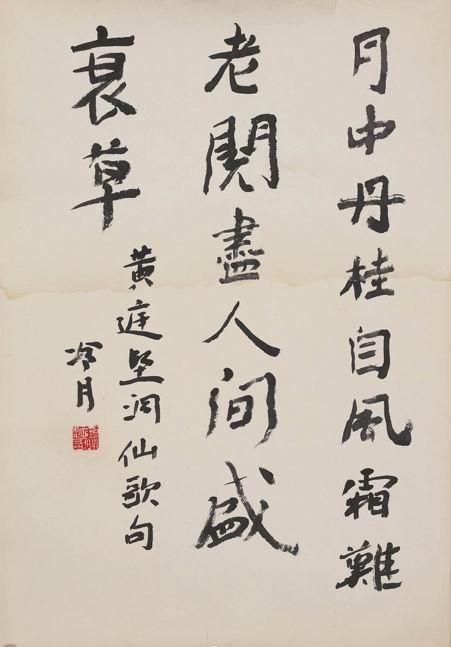 月中丹桂自風霜難
老閱盡人间盛
衰草
黄庭坚洞仙歌句
冷月